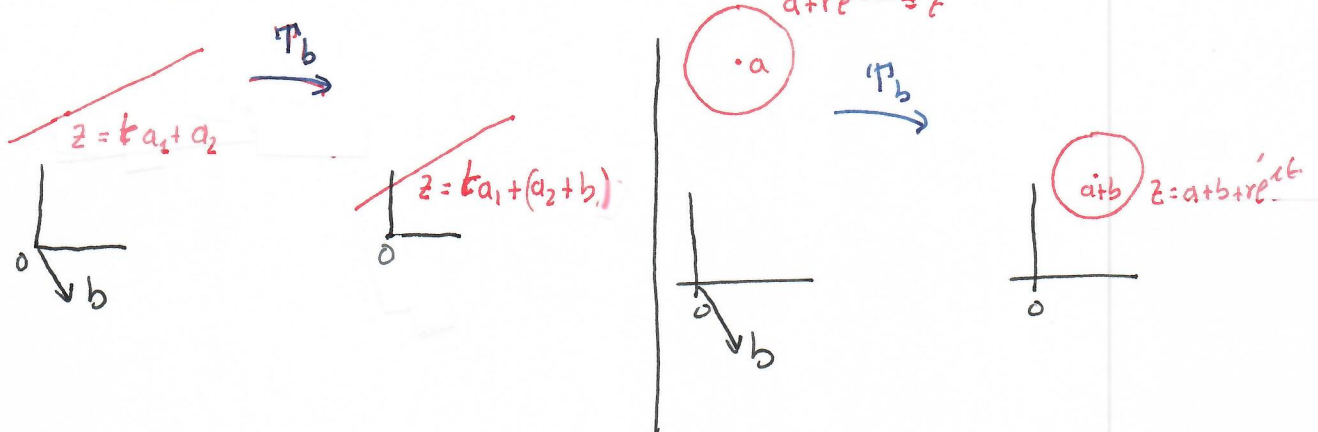 T_b
z = ta₁ + a₂
0
b
z = ta₁ + (a₂ + b)
0
a
T_b
0
b
a+b
z = a+b+re^{it}
0